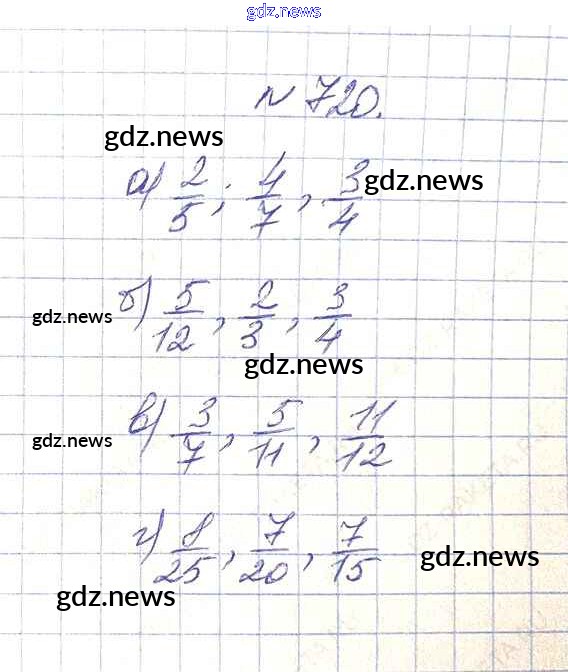 gdz.news
N 720.
gdz.news
а) 2/5; 4/7, 3/4
gdz.news
б) 5/12, 2/3, 3/4
gdz.news
gdz.news
в) 3/7, 5/11, 11/12
gdz.news
г) 8/25, 7/20, 7/15
gdz.news
gdz.news